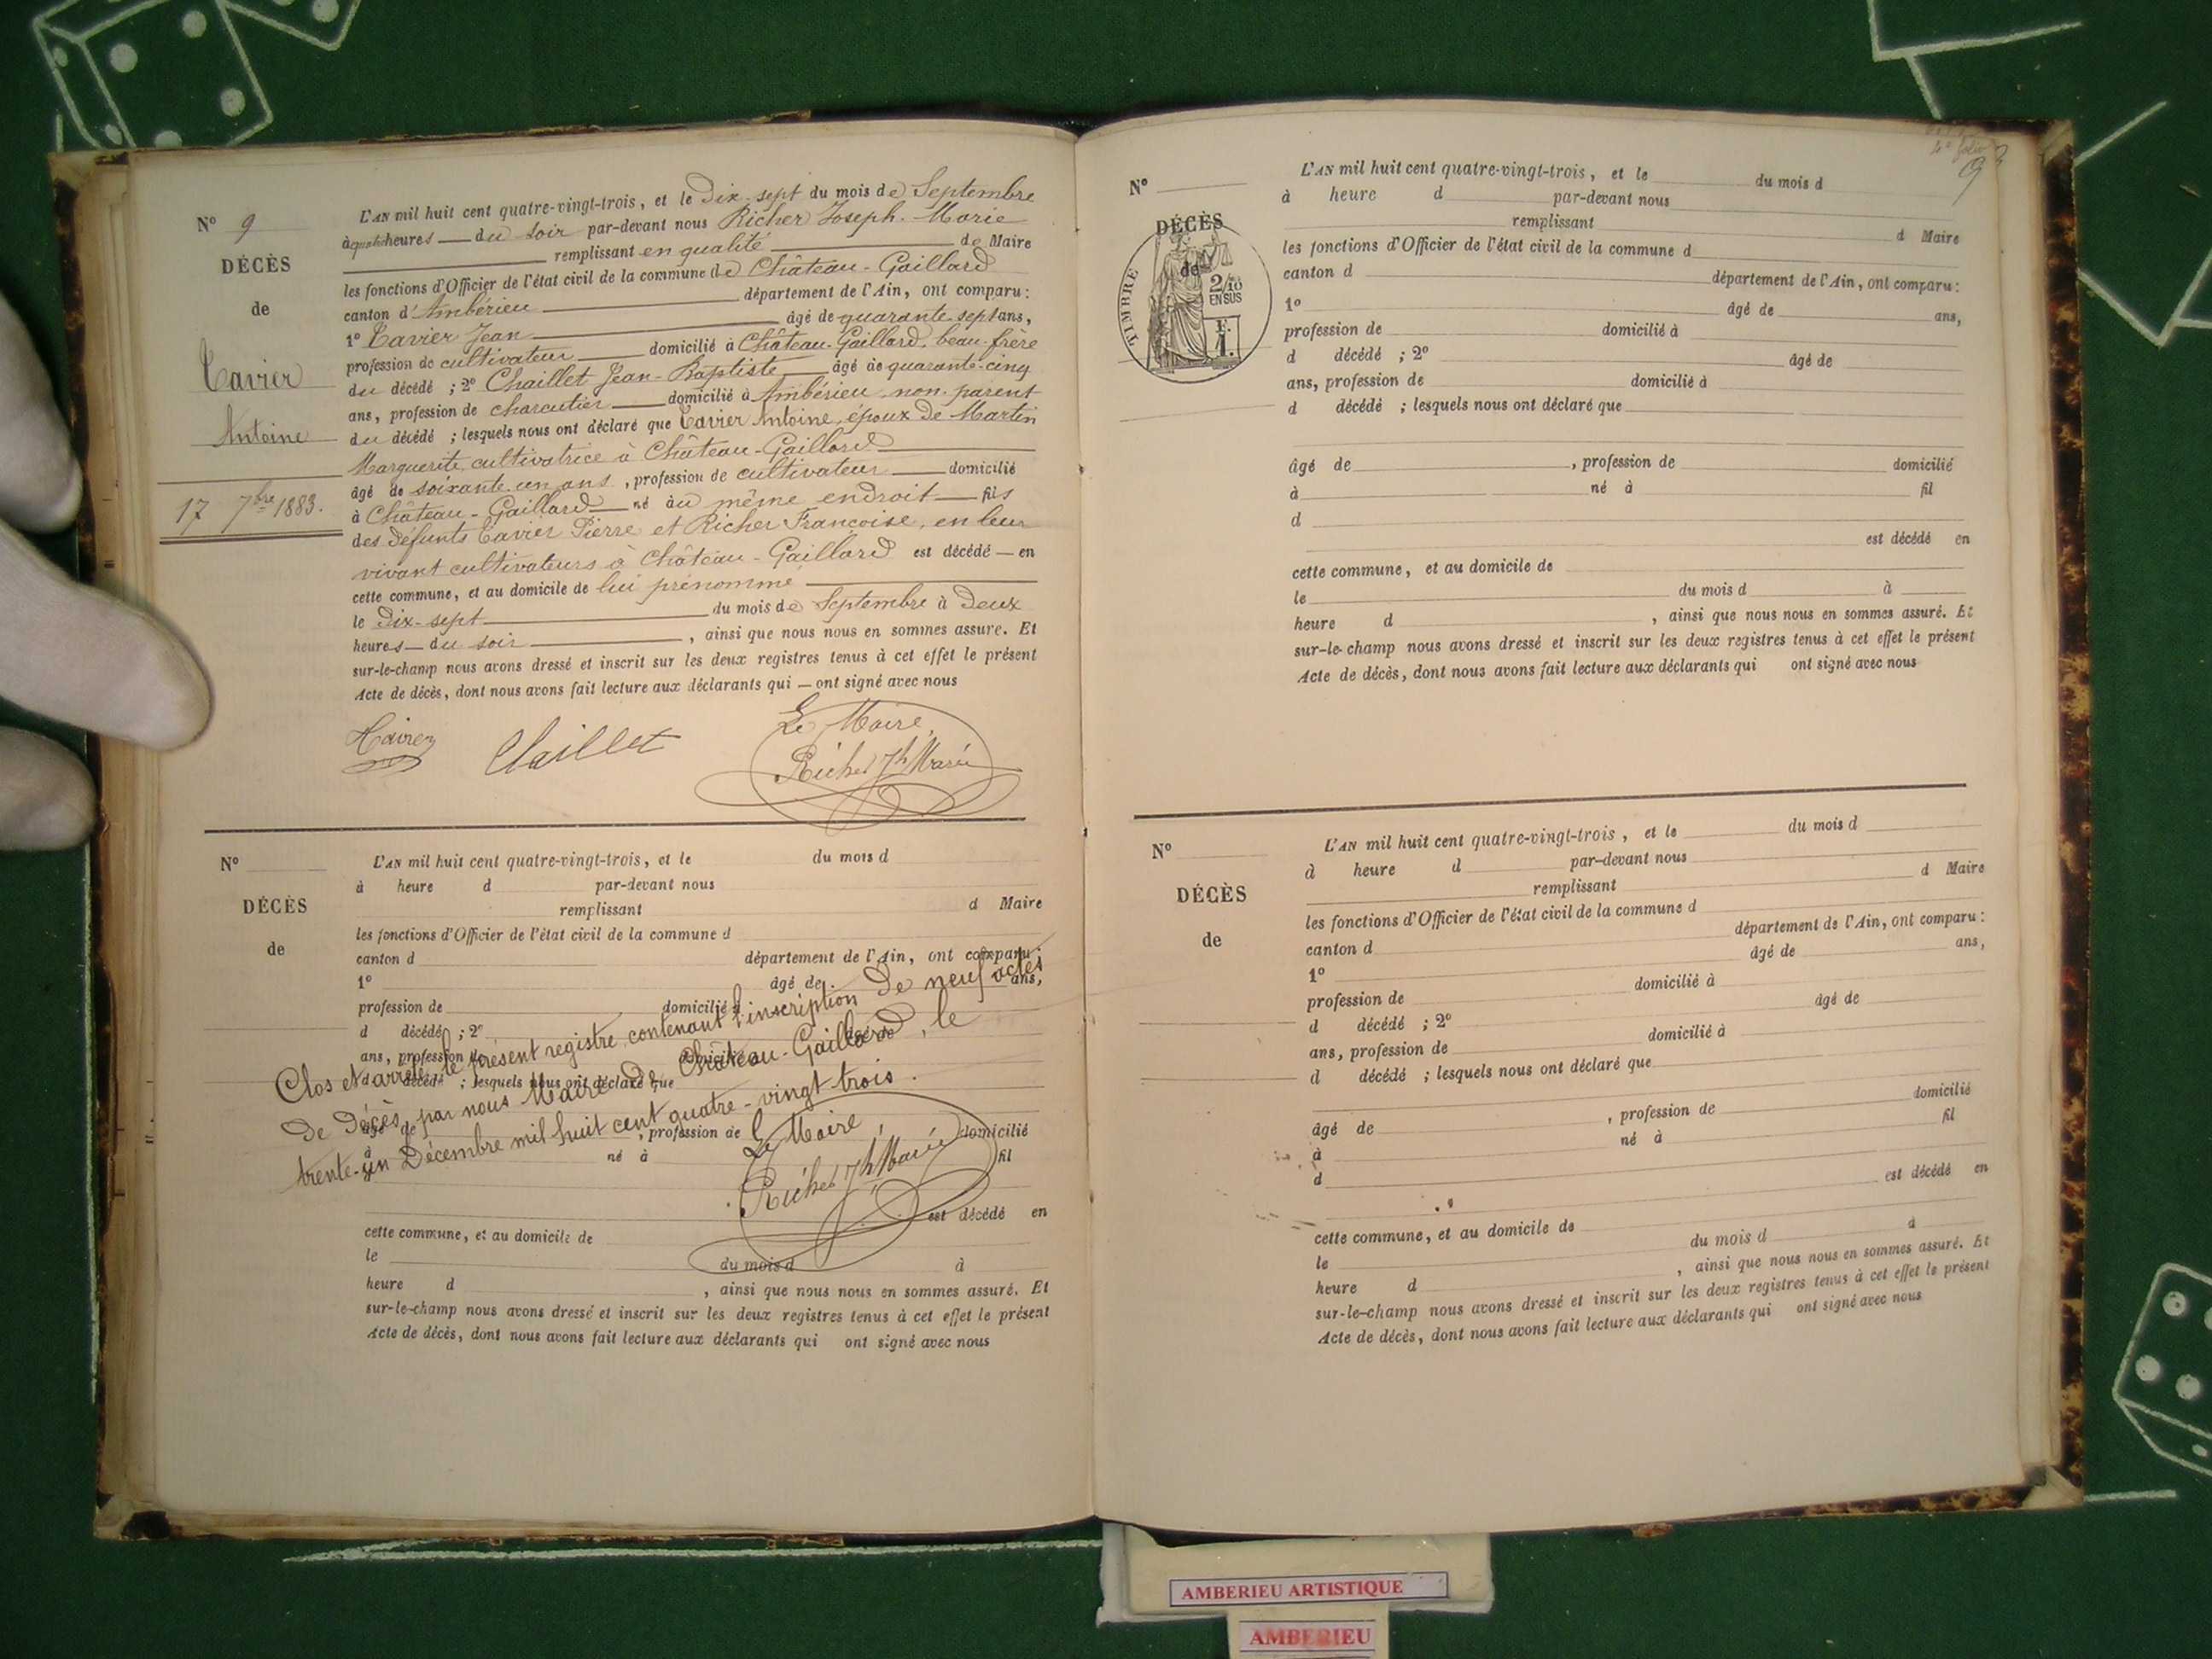 N° 9
DÉCÈS
de
Tavier
Antoine
17 7bre 1883.
L'AN mil huit cent quatre-vingt-trois, et le Dix-sept du mois de Septembre
à quatre heures du soir par-devant nous Richer Joseph-Marie
remplissant en qualité de Maire
les fonctions d'Officier de l'état civil de la commune de Château-Gaillard
canton d'Ambérieu département de l'Ain, ont comparu :
1° Tavier Jean âgé de quarante-sept ans,
profession de cultivateur domicilié à Château-Gaillard, beau-frère
du décédé ; 2° Chaillet Jean-Baptiste âgé de quarante-cinq
ans, profession de charcutier domicilié à Ambérieu non-parent
du décédé ; lesquels nous ont déclaré que Tavier Antoine, époux de Martin
Marguerite, cultivatrice à Château-Gaillard
âgé de soixante-un ans, profession de cultivateur domicilié
à Château-Gaillard né au même endroit fils
des défunts Tavier Pierre et Richer Francoise, en leur
vivant cultivateurs à Château-Gaillard est décédé en
cette commune, et au domicile de lui prénommé
le Dix-sept du mois de Septembre à Deux
heures du soir, ainsi que nous nous en sommes assuré. Et
sur-le-champ nous avons dressé et inscrit sur les deux registres tenus à cet effet le présent
Acte de décès, dont nous avons fait lecture aux déclarants qui ont signé avec nous
Chaillet
Le Maire,
Richer Jh Marie
N°
DÉCÈS
de
L'AN mil huit cent quatre-vingt-trois, et le du mois d
à heure d par-devant nous
remplissant d Maire
les fonctions d'Officier de l'état civil de la commune d
canton d département de l'Ain, ont comparu :
1° âgé de ans,
profession de domicilié à
d décédé ; 2° âgé de
ans, profession de domicilié à
d décédé ; lesquels nous ont déclaré que
âgé de , profession de domicilié
à né à fil
est décédé en
cette commune, et au domicile de
le du mois d à
heure d , ainsi que nous nous en sommes assuré. Et
sur-le-champ nous avons dressé et inscrit sur les deux registres tenus à cet effet le présent
Acte de décès, dont nous avons fait lecture aux déclarants qui ont signé avec nous
Clos et arrêté le présent registre, contenant l'inscription de neuf actes
de Décès, par nous Maire de Château-Gaillard, le
trente-un Décembre mil huit cent quatre-vingt trois.
Le Maire,
Richer Jh Marie
4e folio
N°
DÉCÈS
de
TIMBRE
2/10
EN SUS
L'AN mil huit cent quatre-vingt-trois, et le du mois d
à heure d par-devant nous
remplissant d Maire
les fonctions d'Officier de l'état civil de la commune d
canton d département de l'Ain, ont comparu :
1° âgé de ans,
profession de domicilié à
d décédé ; 2° âgé de
ans, profession de domicilié à
d décédé ; lesquels nous ont déclaré que
âgé de , profession de domicilié
à né à fil
d
est décédé en
cette commune, et au domicile de
le du mois d à
heure d , ainsi que nous nous en sommes assuré. Et
sur-le-champ nous avons dressé et inscrit sur les deux registres tenus à cet effet le présent
Acte de décès, dont nous avons fait lecture aux déclarants qui ont signé avec nous
N°
DÉCÈS
de
L'AN mil huit cent quatre-vingt-trois, et le du mois d
à heure d par-devant nous
remplissant d Maire
les fonctions d'Officier de l'état civil de la commune d
canton d département de l'Ain, ont comparu :
1° âgé de ans,
profession de domicilié à
d décédé ; 2° âgé de
ans, profession de domicilié à
d décédé ; lesquels nous ont déclaré que
âgé de , profession de domicilié
à né à fil
d
est décédé en
cette commune, et au domicile de
le du mois d à
heure d , ainsi que nous nous en sommes assuré. Et
sur-le-champ nous avons dressé et inscrit sur les deux registres tenus à cet effet le présent
Acte de décès, dont nous avons fait lecture aux déclarants qui ont signé avec nous
AMBERIEU ARTISTIQUE
AMBERIEU